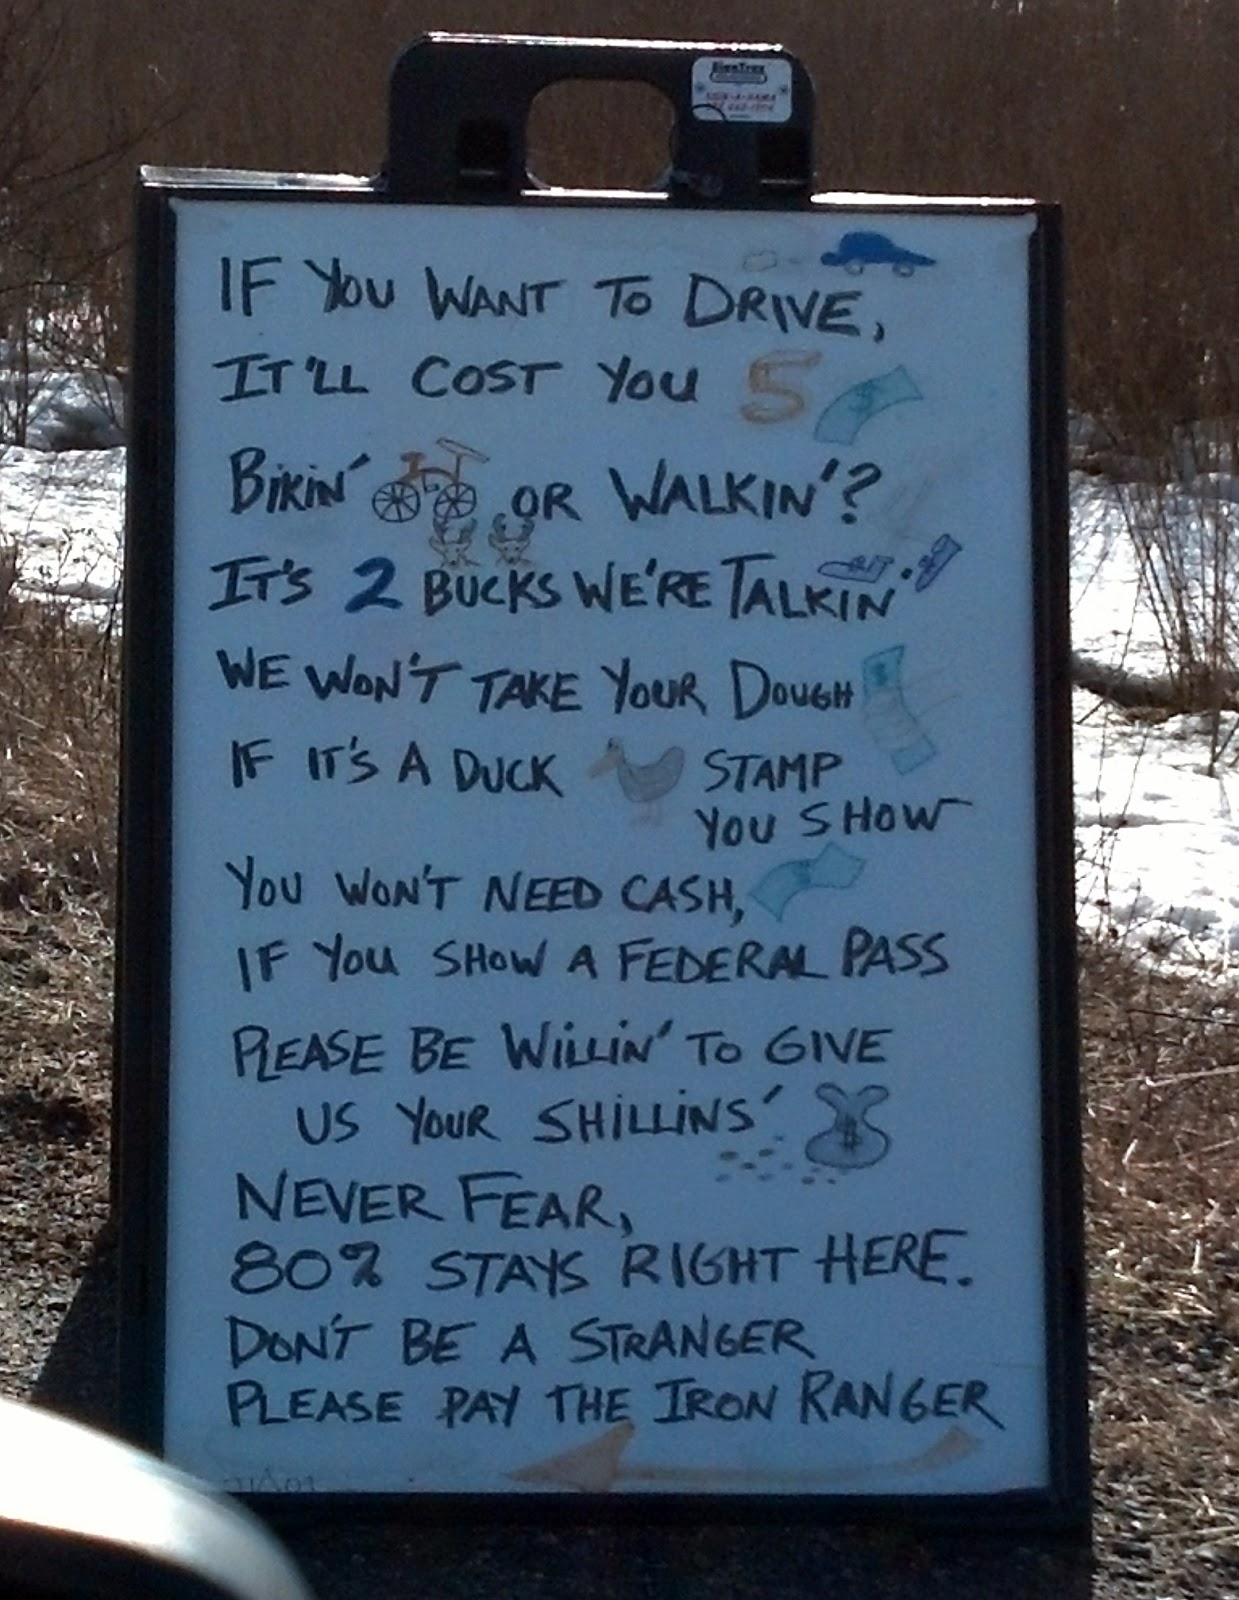 SignTrax
IF YOU WANT TO DRIVE,
IT'LL COST YOU 5
BIKIN' OR WALKIN'?
IT'S 2 BUCKS WE'RE TALKIN'
WE WON'T TAKE YOUR DOUGH
IF IT'S A DUCK STAMP
YOU SHOW
YOU WON'T NEED CASH,
IF YOU SHOW A FEDERAL PASS
PLEASE BE WILLIN' TO GIVE
US YOUR SHILLINS'
NEVER FEAR,
80% STAYS RIGHT HERE.
DON'T BE A STRANGER
PLEASE PAY THE IRON RANGER